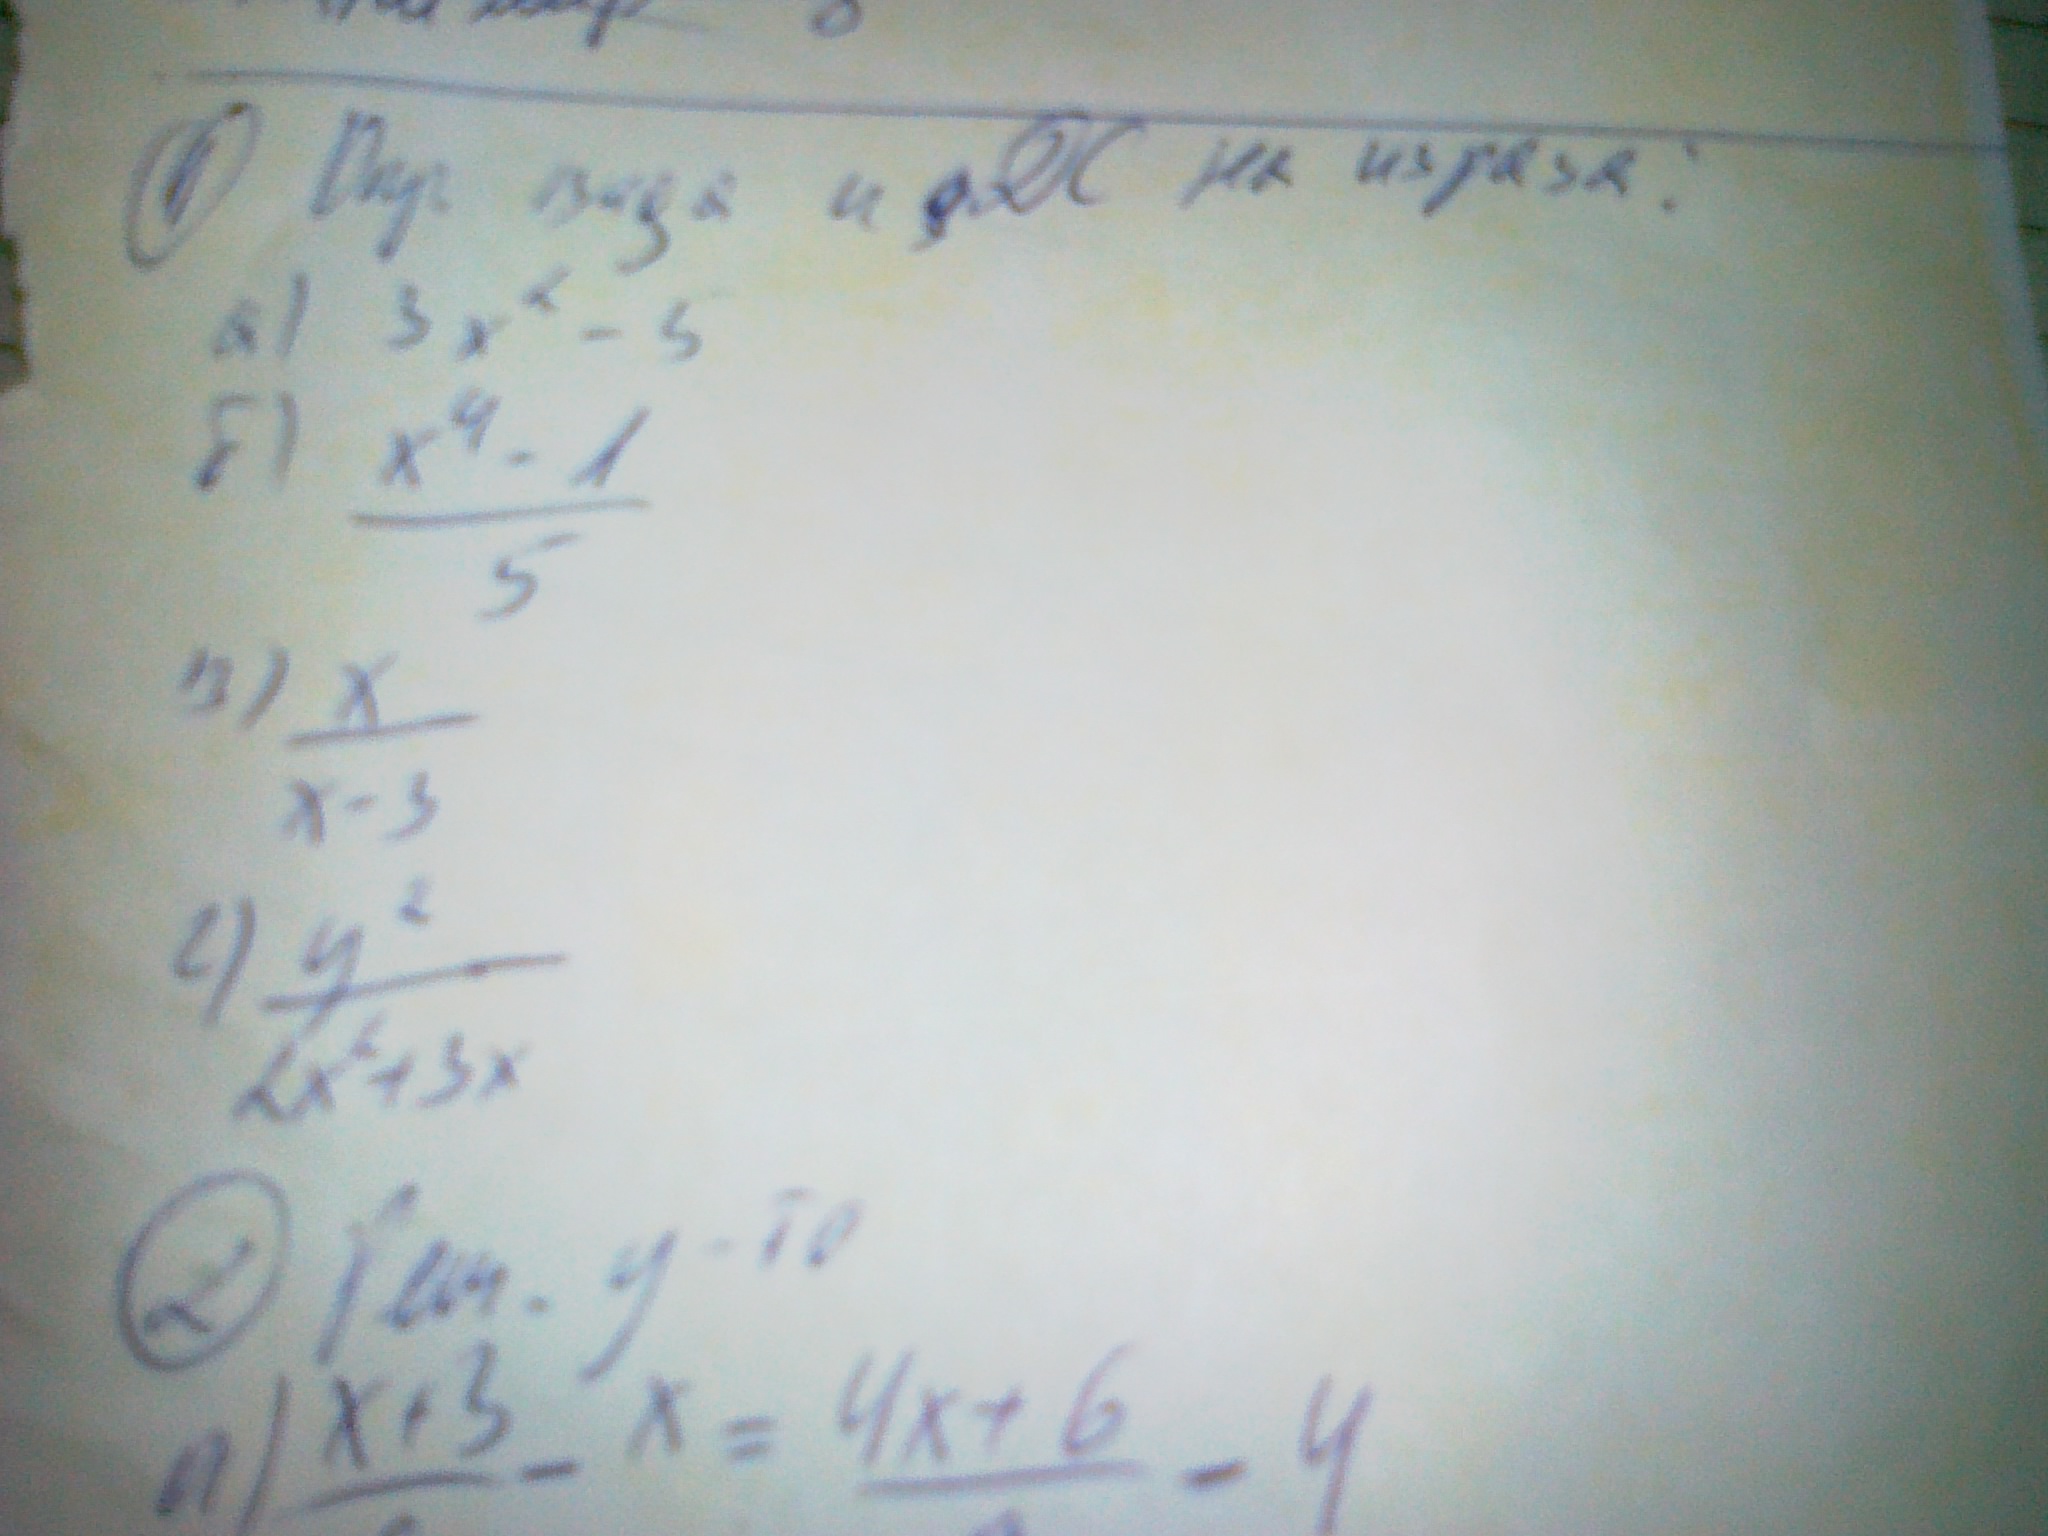 ① Опр вида и ДС на израза:
а) 3x² - 5
б) x⁴ - 1
5
в) x
x - 3
г) y²
2x² + 3x
② Реш. у-то
а) x+3 - x = 4x+6 - 4